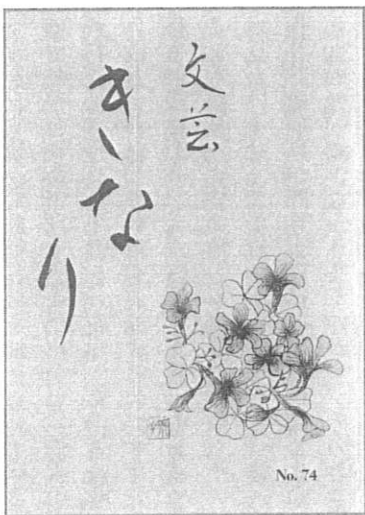 文芸
きなり
No. 74